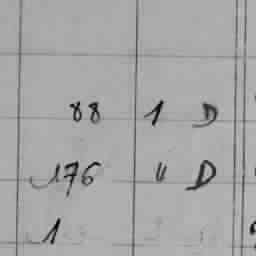 88 1 D
176 " D
1